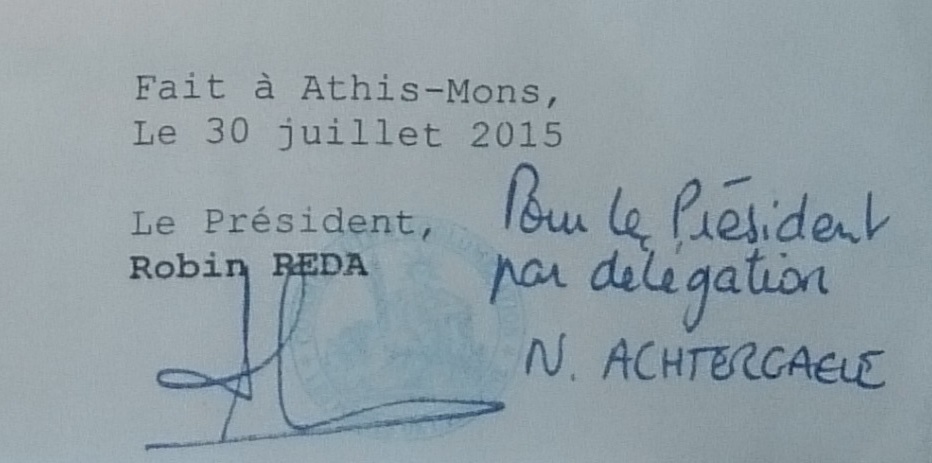 Fait à Athis-Mons,
Le 30 juillet 2015
Le Président,
Robin REDA
Pour le Président
par délégation
N. ACHTERGAELE